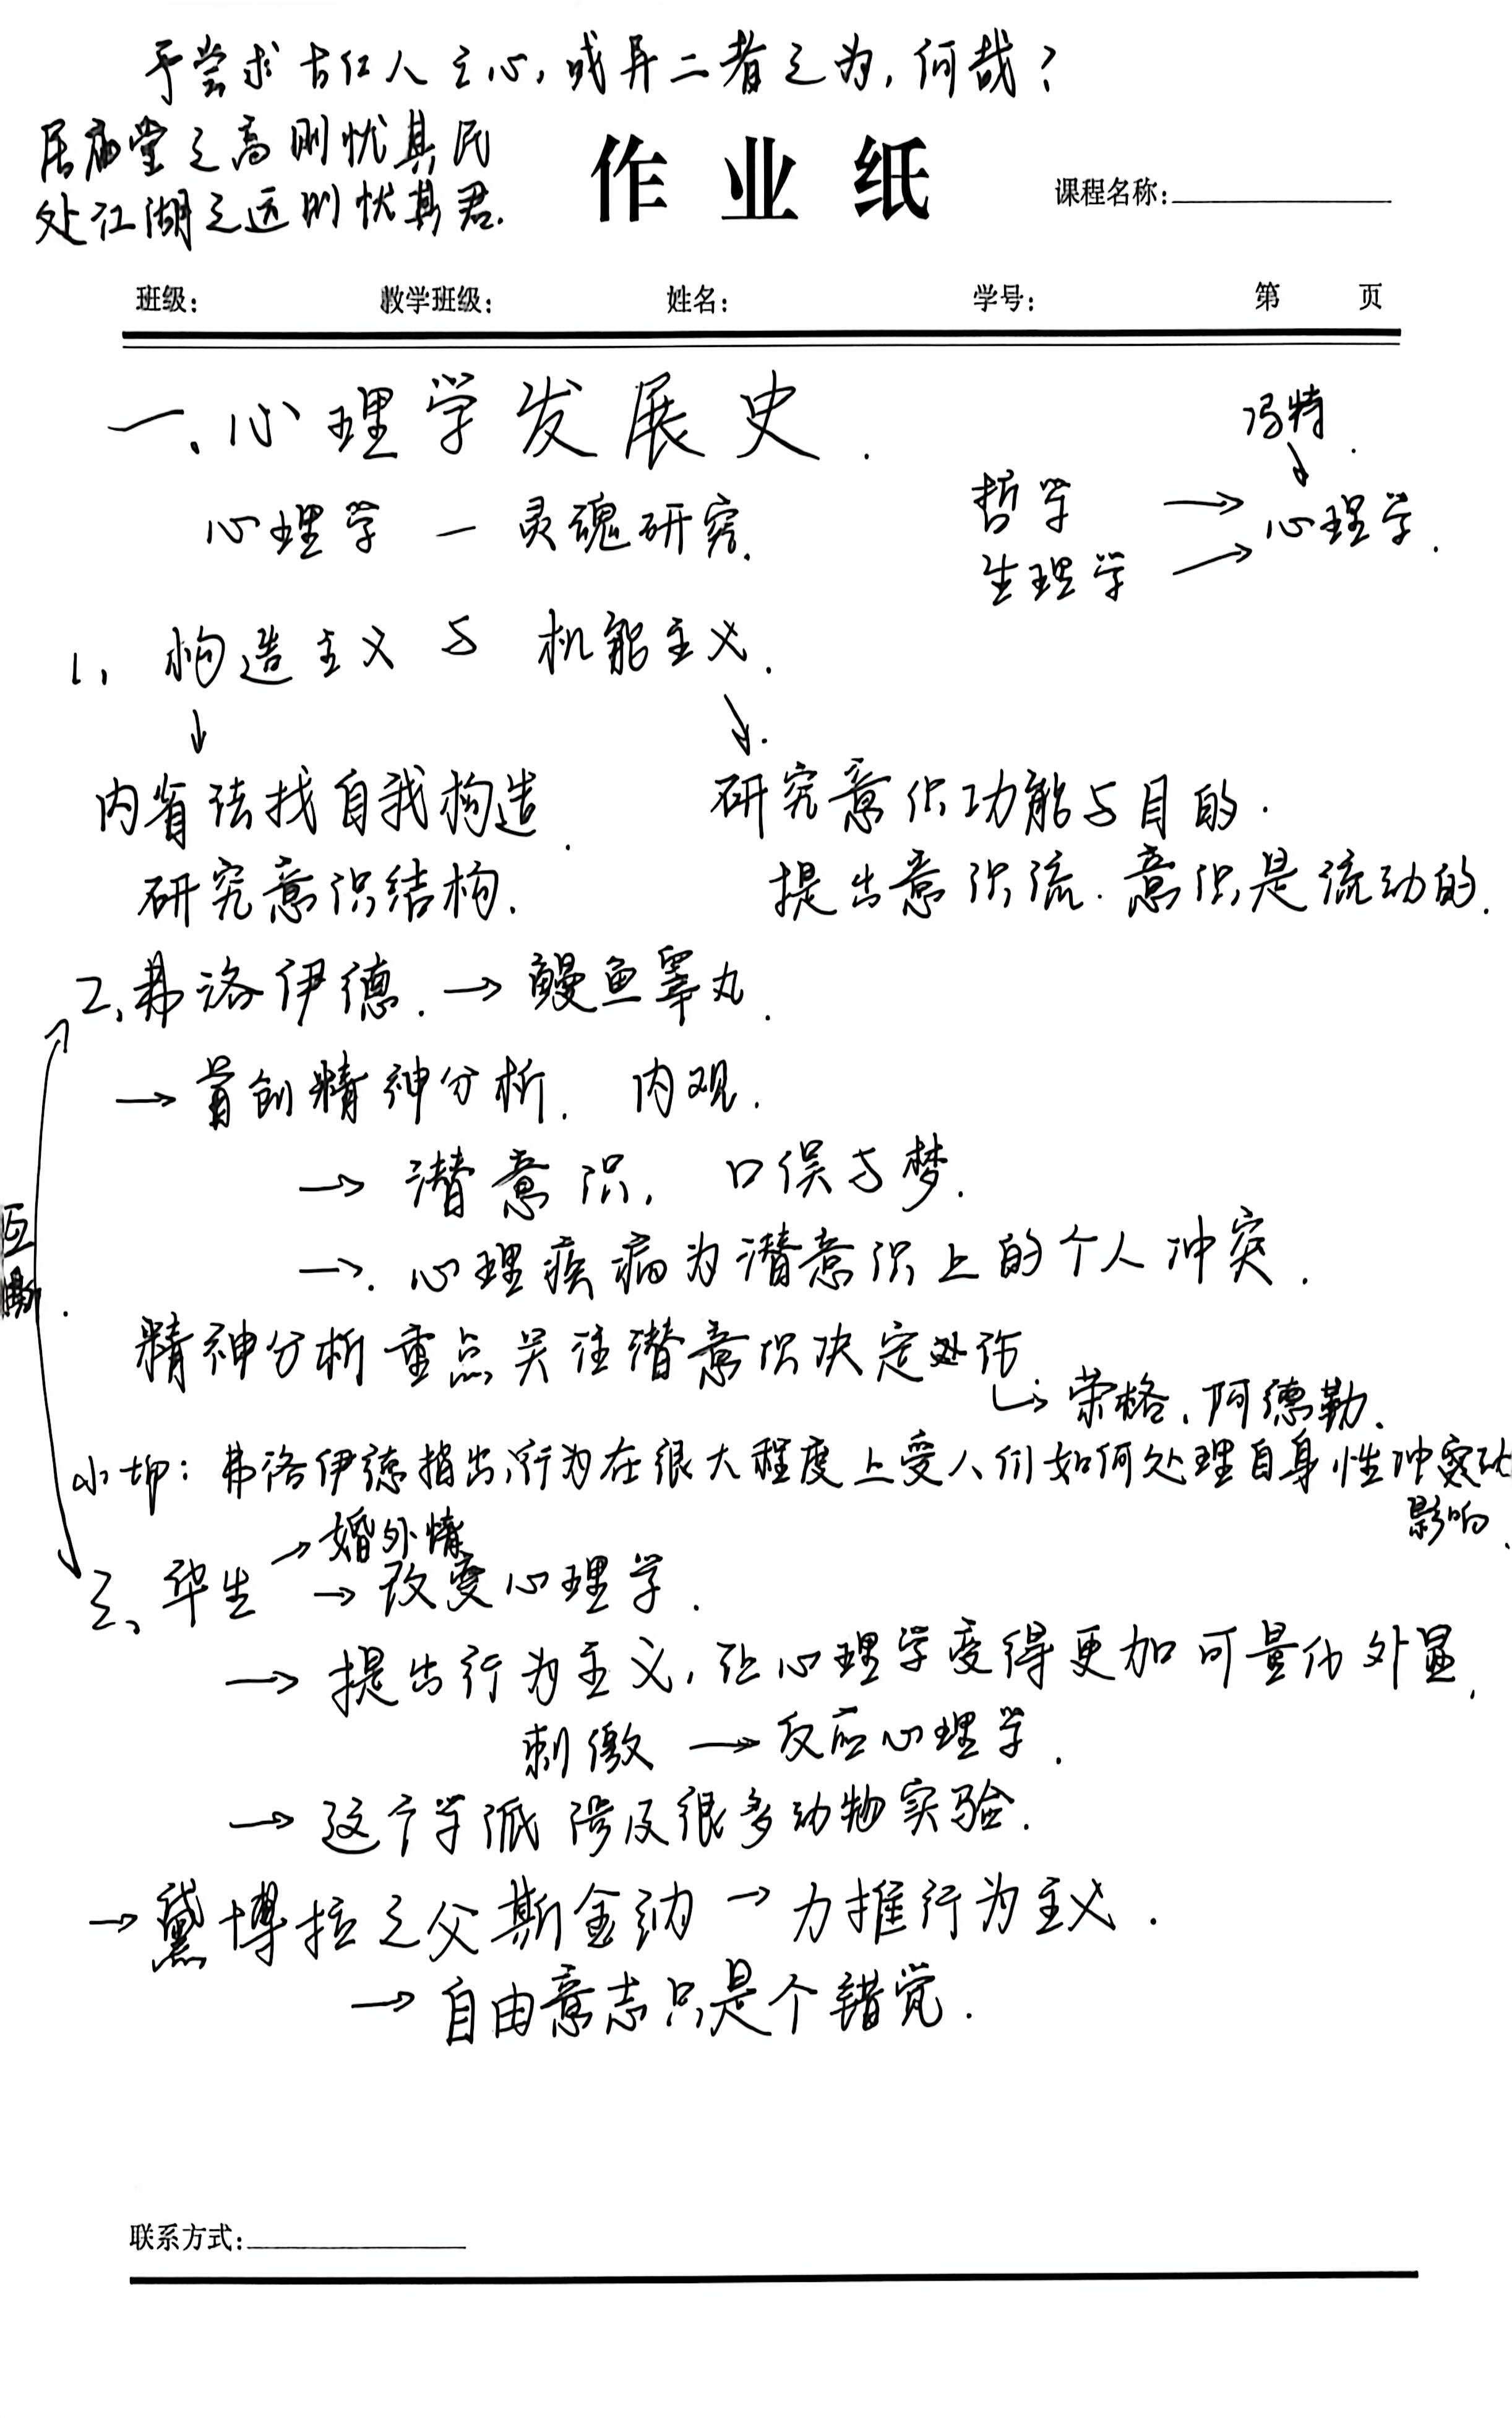 予尝求古仁人之心,或异二者之为,何哉?
居庙堂之高则忧其民
处江湖之远则忧其君.
作业纸
课程名称:
班级: 教学班级: 姓名: 学号: 第 页
一、心理学发展史.
冯特.
↓
心理学 — 灵魂研究.
哲学 → 心理学.
生理学 →
1、构造主义与机能主义.
↓ ↓.
内省法找自我构造. 研究意识功能与目的.
研究意识结构. 提出意识流.意识是流动的.
2、弗洛伊德.→鳗鱼睾丸.
→首创精神分析. 内观.
→潜意识, 口误与梦.
→.心理疾病为潜意识上的个人冲突.
精神分析重点关注潜意识决定
↳荣格、阿德勒.
小坤:弗洛伊德指出,行为在很大程度上受人们如何处理自身性冲突的
影响.
→婚外情
三、华生→改变心理学.
→提出行为主义,让心理学变得更加可量化外显.
刺激→反应心理学.
→这个学派涉及很多动物实验.
→黛博拉之父斯金纳→力推行为主义.
→自由意志只是个错觉.
联系方式: